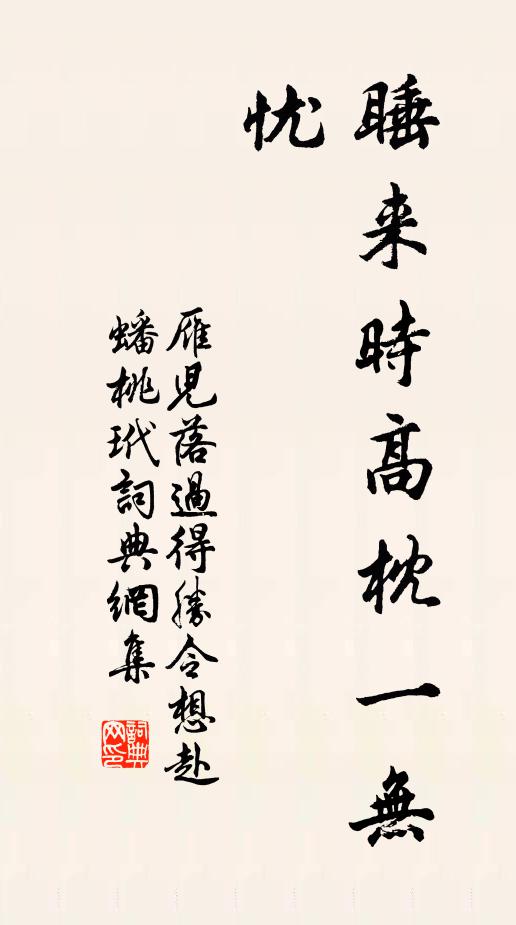 睡来時高枕一無
忧
雁児落過得勝令想赴
蟠桃玳詞典網集
詞典